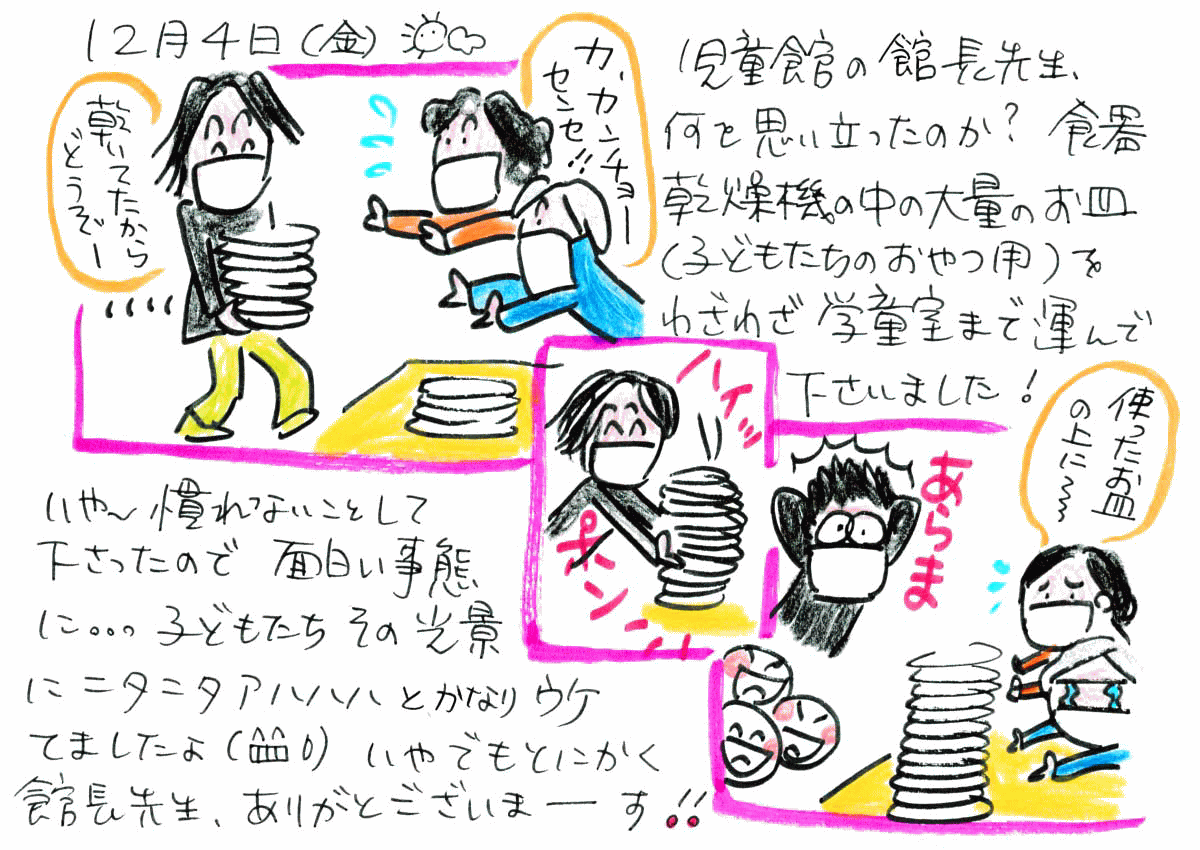 12月4日(金)
乾いてたから
どうぞー
カ、カンチョー
センセ!!
児童館の館長先生、
何を思い立ったのか? 食器
乾燥機の中の大量のお皿
(子どもたちのおやつ用)を
わざわざ学童室まで運んで
下さいました!
ハイッ
ポン
あらま
使ったお皿
の上に〜〜
いや〜慣れないことして
下さったので 面白い事態
に...子どもたちその光景
にニタニタアハハハハとかなりウケ
てましたよ
いやでもとにかく
館長先生、ありがとございまーす!!